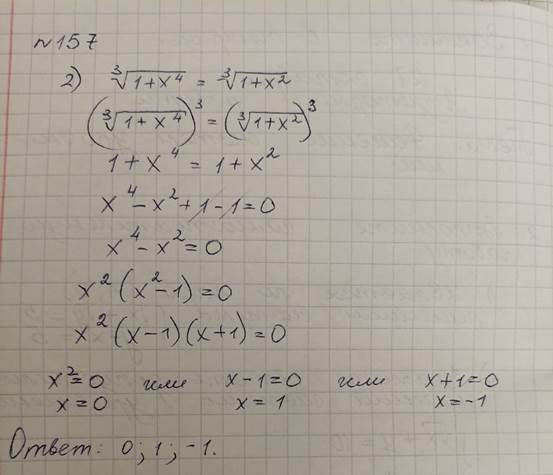 №157
2) ∛(1+x⁴) = ∛(1+x²)
(∛(1+x⁴))³ = (∛(1+x²))³
1+x⁴ = 1+x²
x⁴-x²+1-1=0
x⁴-x²=0
x²(x²-1)=0
x²(x-1)(x+1)=0
x²=0 или x-1=0 или x+1=0
x=0 x=1 x=-1
Ответ: 0; 1; -1.